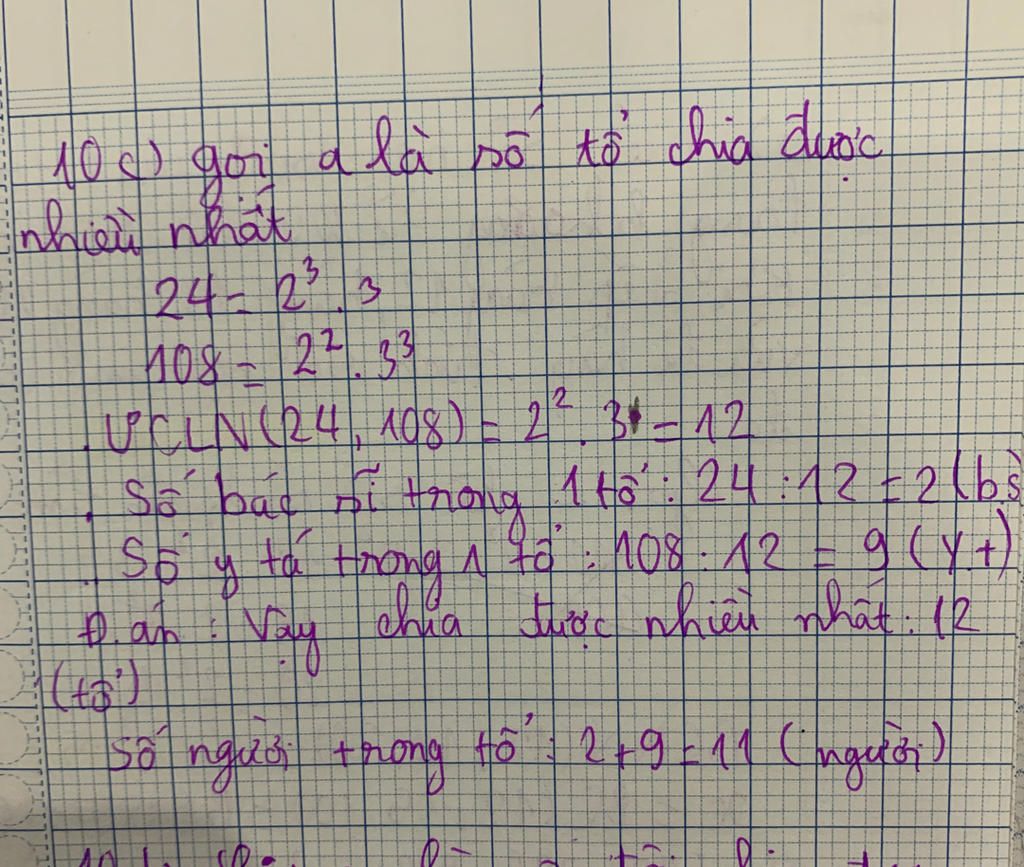 10c) gọi a là số tổ chia được
nhiều nhất
24 = 2³ . 3
108 = 2² . 3³
ƯCLN(24, 108) = 2² . 3 = 12
Số bác sĩ trong 1 tổ : 24 : 12 = 2 (bs
Số y tá trong 1 tổ : 108 : 12 = 9 (y.t)
Đ.án : Vậy chia được nhiều nhất : 12
(tổ)
Số người trong tổ : 2 + 9 = 11 (người)